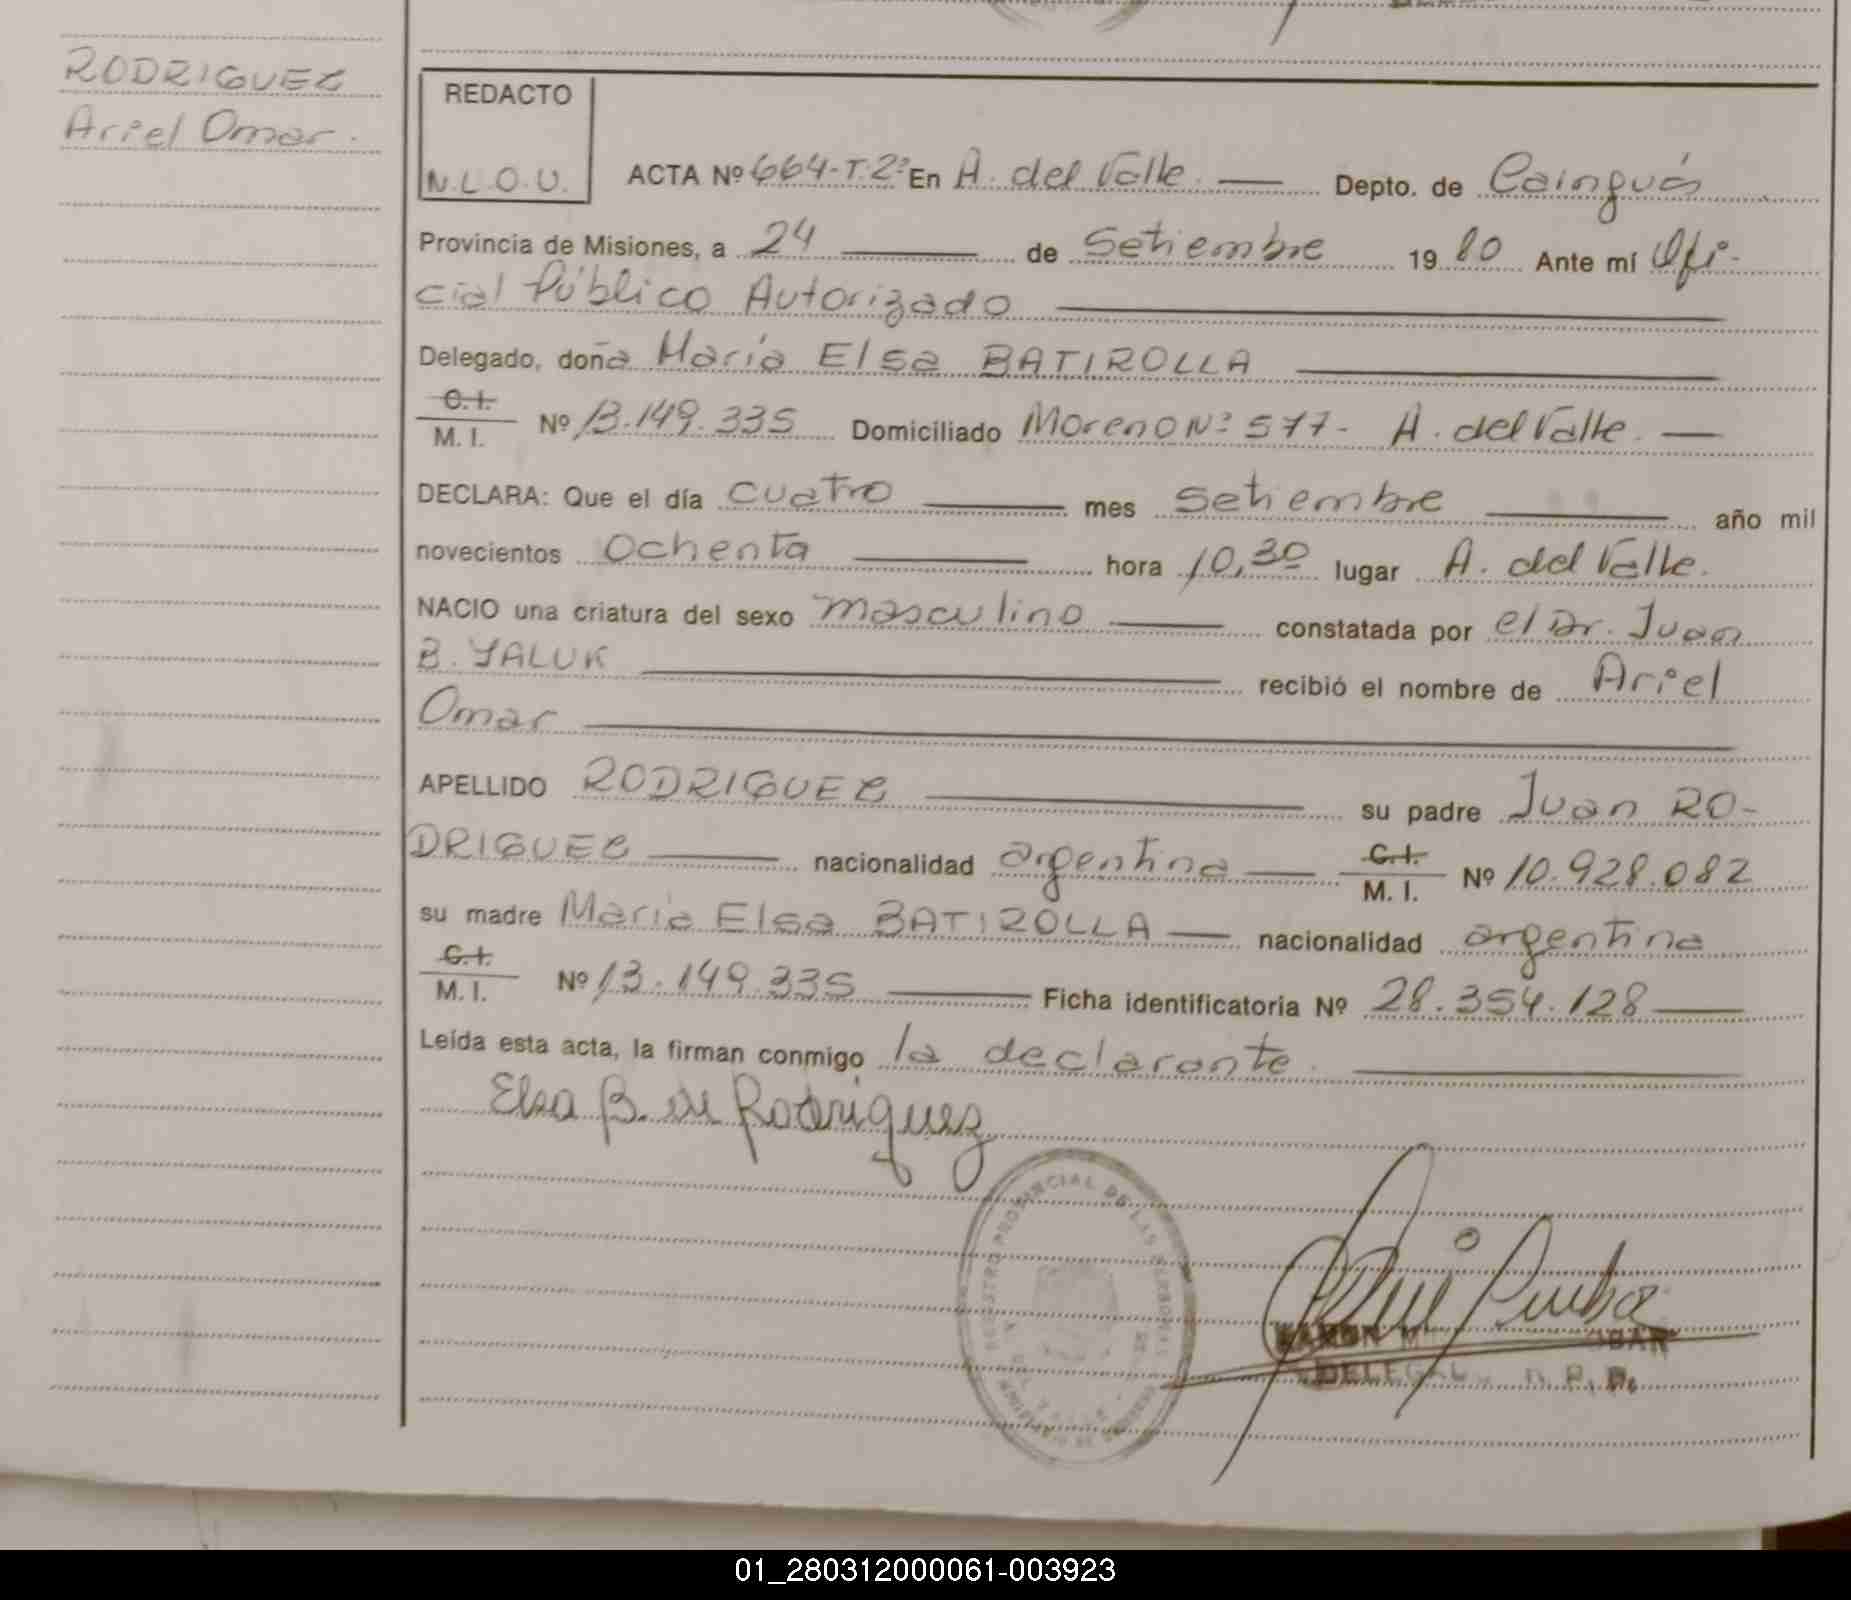 RODRIGUEZ
Ariel Omar.
REDACTO
N.L.O.U.
ACTA Nº 664-T.2º En A. del Valle. Depto. de Cainguás
Provincia de Misiones, a 24 de Setiembre 1980 Ante mí Ofi-
cial Público Autorizado
Delegado, doña María Elsa BATIROLLA
C.I.
M. I. Nº 13.149.335 Domiciliado Moreno Nº 577- A. del Valle.
DECLARA: Que el día cuatro mes setiembre año mil
novecientos ochenta hora 10,30 lugar A. del Valle.
NACIO una criatura del sexo masculino constatada por el Dr. Juan
B. YALUK recibió el nombre de Ariel
Omar
APELLIDO RODRIGUEZ su padre Juan RO-
DRIGUEZ nacionalidad argentina C.I. M. I. Nº 10.928.082
su madre María Elsa BATIROLLA nacionalidad argentina
C.I.
M. I. Nº 13.149.335 Ficha identificatoria Nº 28.354.128
Leída esta acta, la firman conmigo la declarante.
Elsa B. de Rodriguez
REGISTRO PROVINCIAL DE LAS PERSONAS
DELEGAD
R. P. P.
01_280312000061-003923